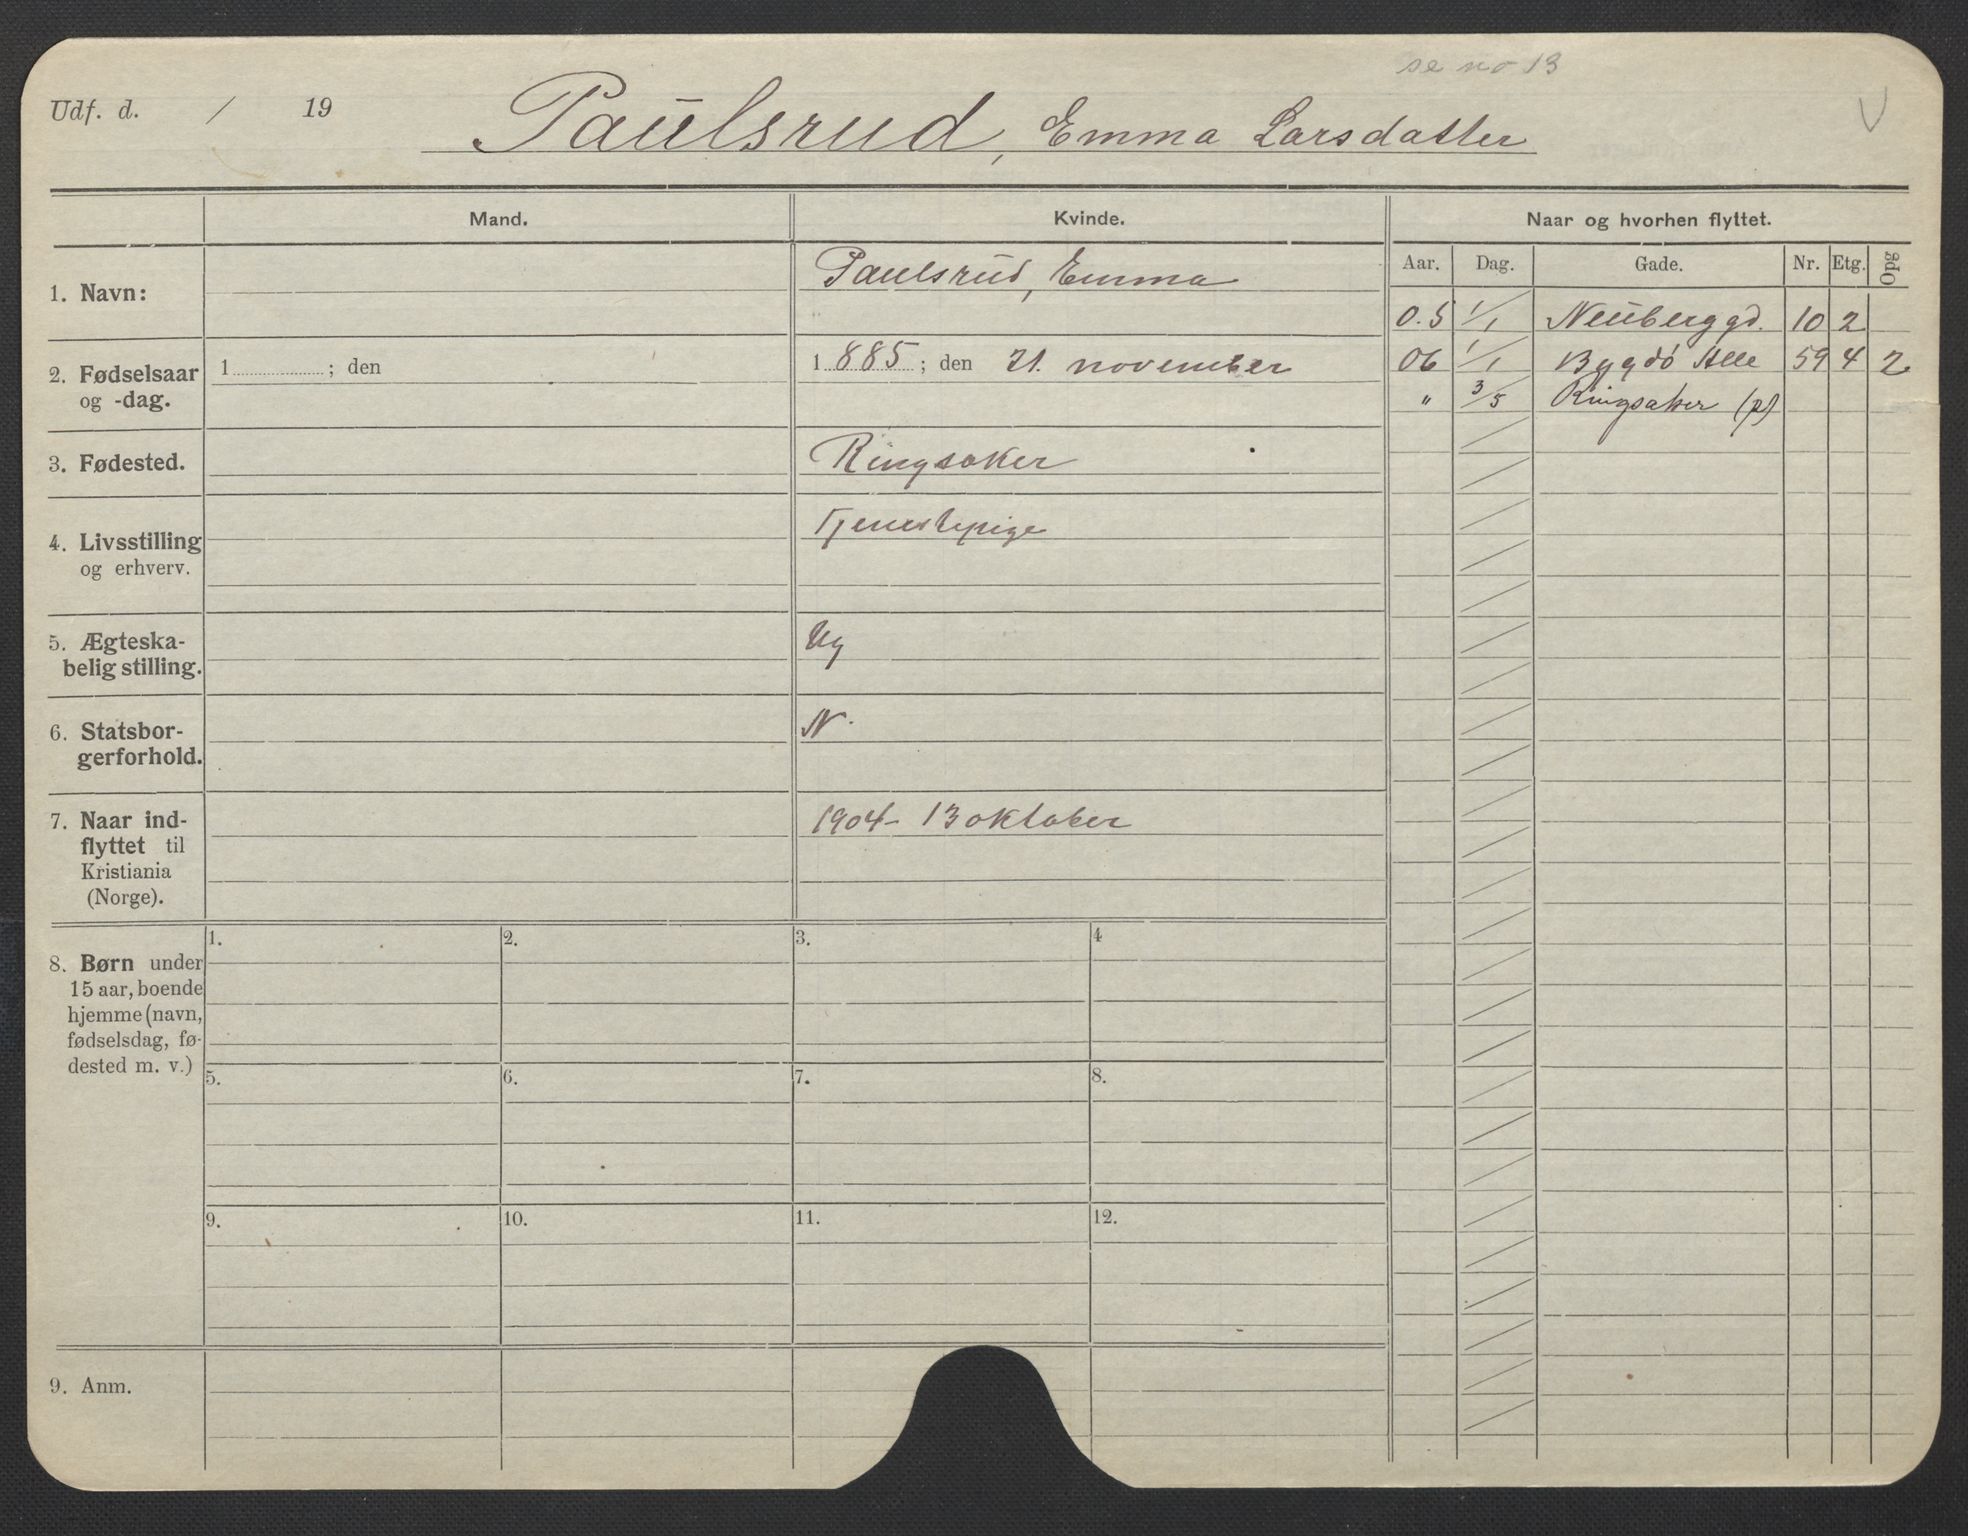 se no 13
V
Udf. d. / 19
Paulsrud, Emma Larsdatter
Mand.
Kvinde.
Naar og hvorhen flyttet.
Aar. Dag. Gade. Nr. Etg. Opg
1. Navn:
Paulsrud, Emma
0.5 1/1 Neuberggd. 10 2
2. Fødselsaar
og -dag.
1 ; den
1 885 ; den 21. november
06 1/1 Bygdö Alle 59 4 2
" 3/5 Ringsaker (p)
3. Fødested.
Ringsaker
4. Livsstilling
og erhverv.
Tjenestepige
5. Ægteska-
belig stilling.
Ug
6. Statsbor-
gerforhold.
N.
7. Naar ind-
flyttet til
Kristiania
(Norge).
1904- 13 oktober
8. Børn under
15 aar, boende
hjemme (navn,
fødselsdag, fø-
dested m. v.)
1. 2. 3. 4
5. 6. 7. 8.
9. 10. 11. 12.
9. Anm.